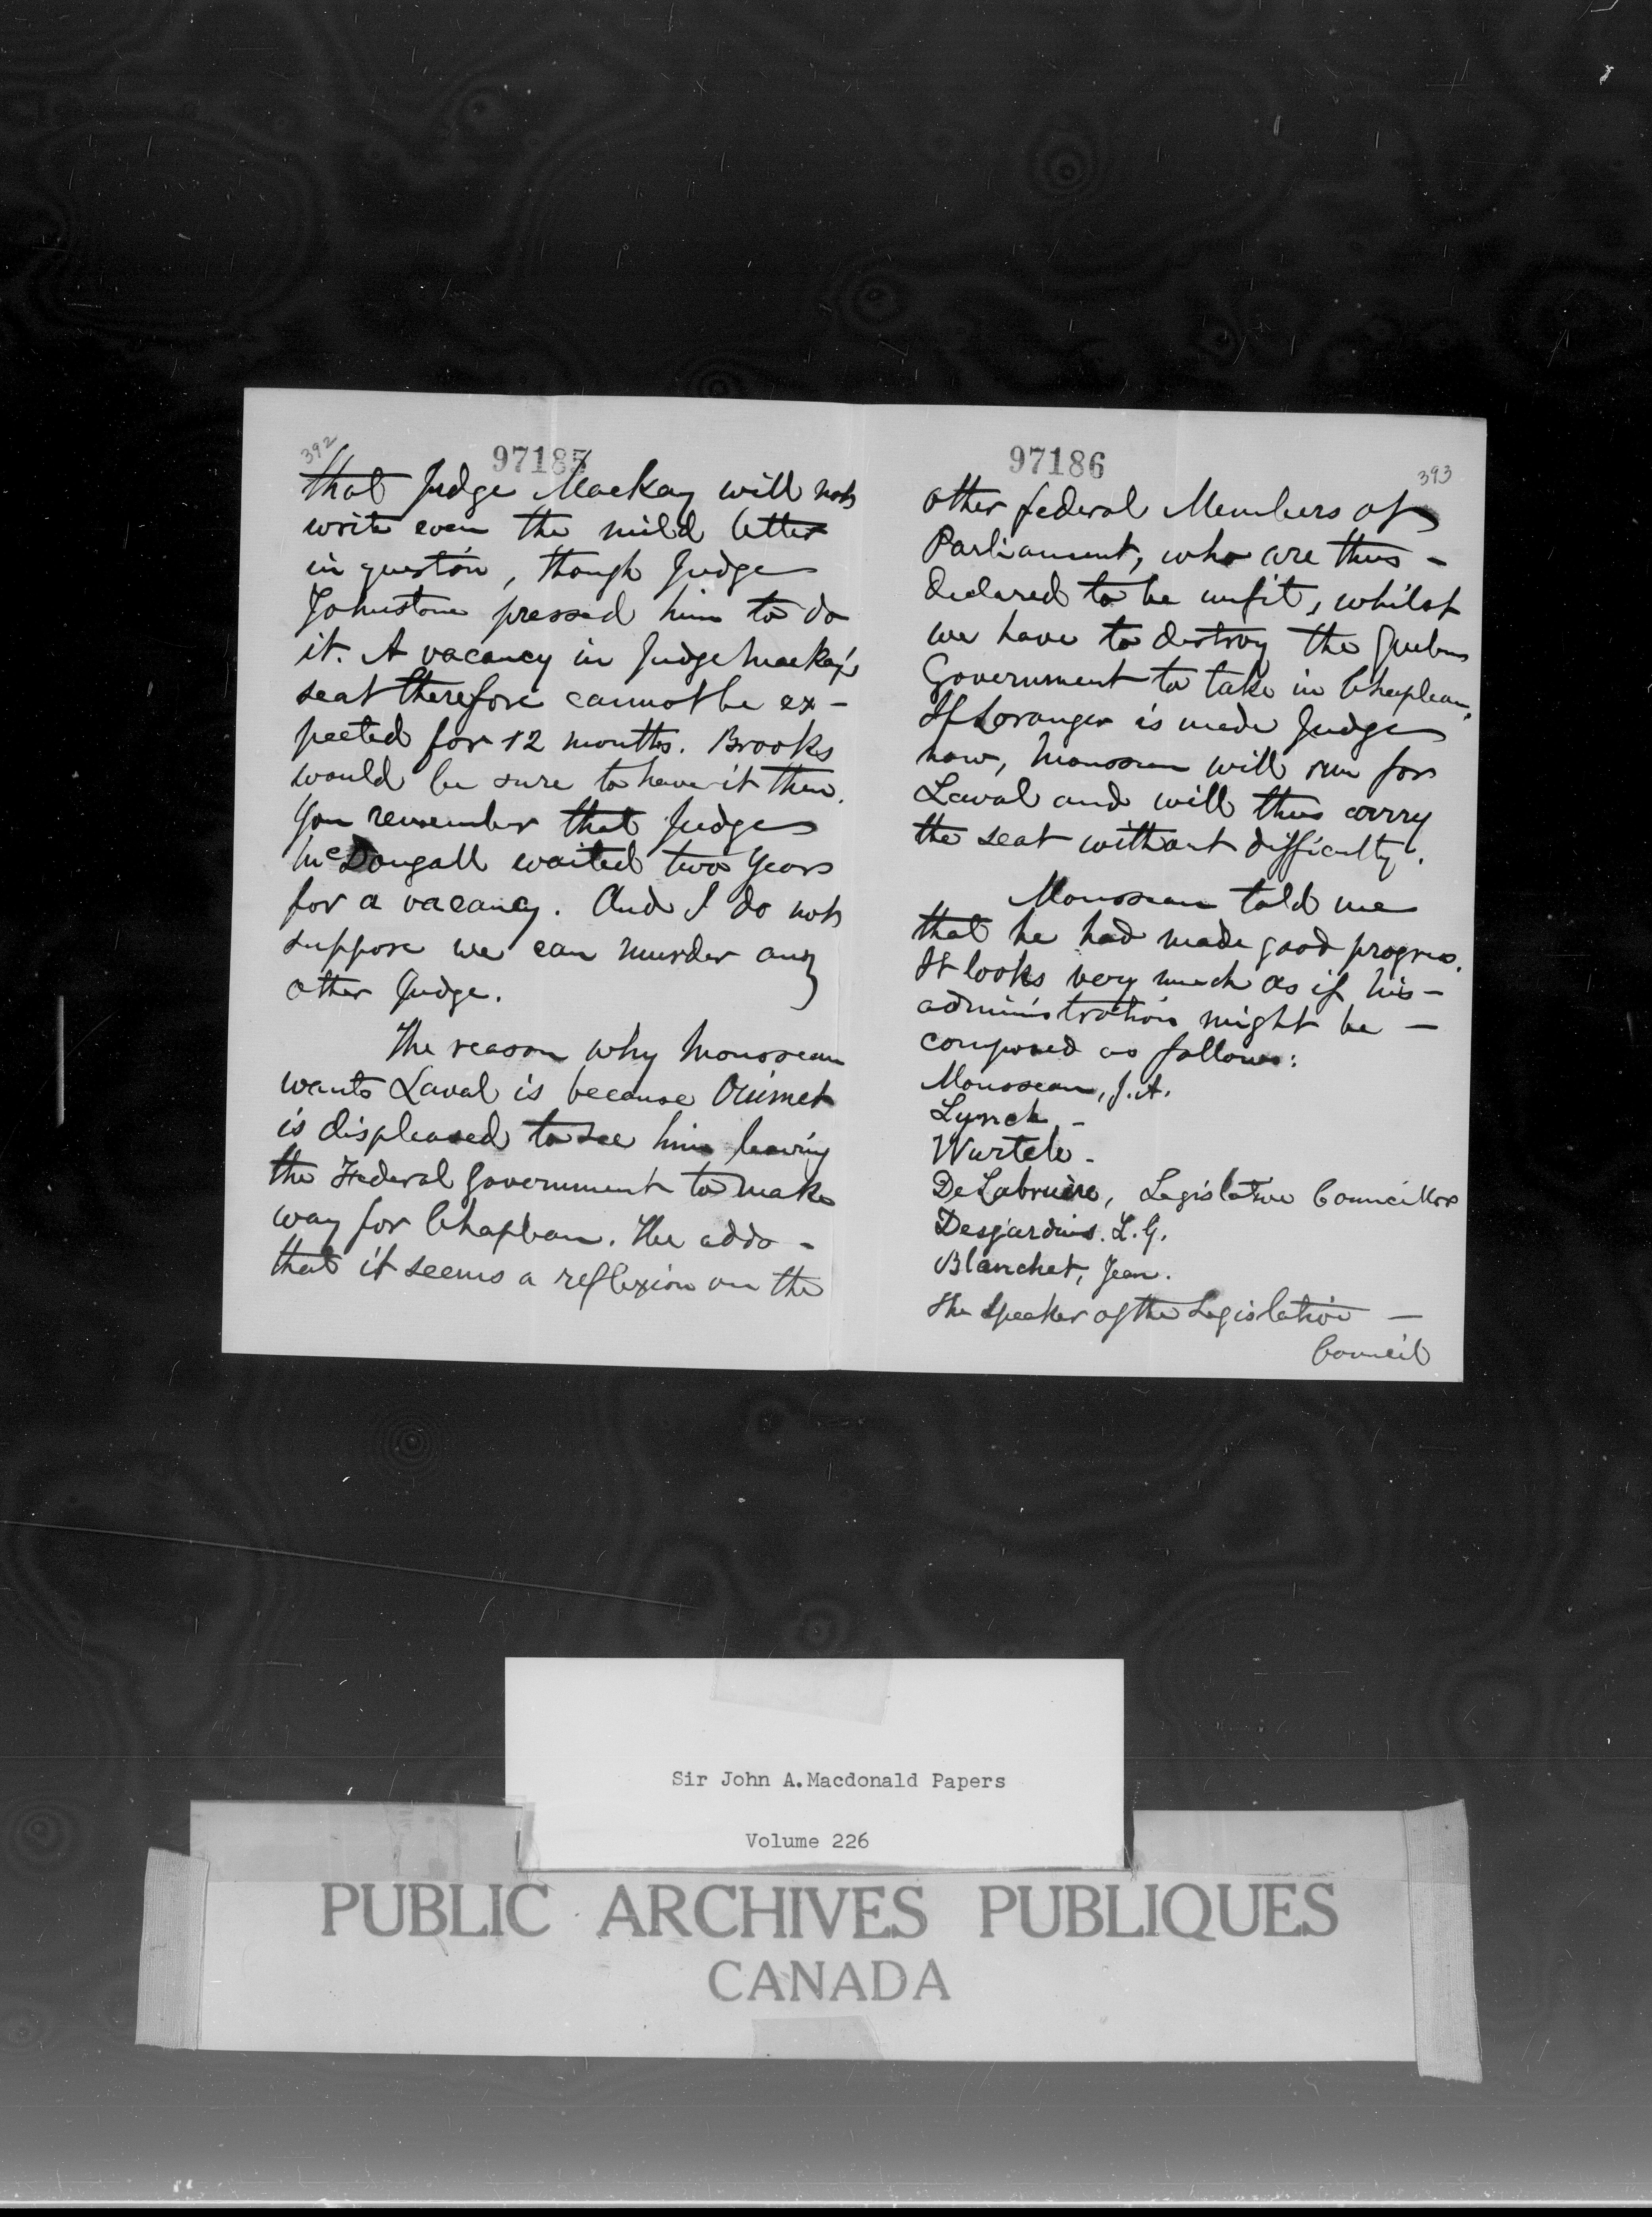 392
97185
that Judge Mackay will not
write even the mild letter
in question, though Judge
Johnstone pressed him to do
it. A vacancy in Judge Mackay's
seat therefore cannot be ex-
pected for 12 months. Brooks
would be sure to have it then.
You remember that Judge
McDougall waited two years
for a vacancy. And I do not
suppose we can murder any
other Judge.
The reason why Mousseau
wants Laval is because Ouimet
is displeased to see him leaving
the Federal Government to make
way for Chapleau. He adds -
that it seems a reflexion on the
97186
393
other federal Members of
Parliament, who are thus -
declared to be unfit, whilst
we have to destroy the Quebec
Government to take in Chapleau.
If Loranger is made Judge
now, Mousseau will run for
Laval and will thus carry
the seat without difficulty.
Mousseau told me
that he had made good progress.
It looks very much as if his -
administration might be -
composed as follows:
Mousseau, J.A.
Lynch -
Wurtele -
De Labruère, Legislative Councillor
Desjardins. L.G.
Blanchet, Jean.
The Speaker of the Legislative -
Council
Sir John A. Macdonald Papers
Volume 226
PUBLIC ARCHIVES PUBLIQUES
CANADA